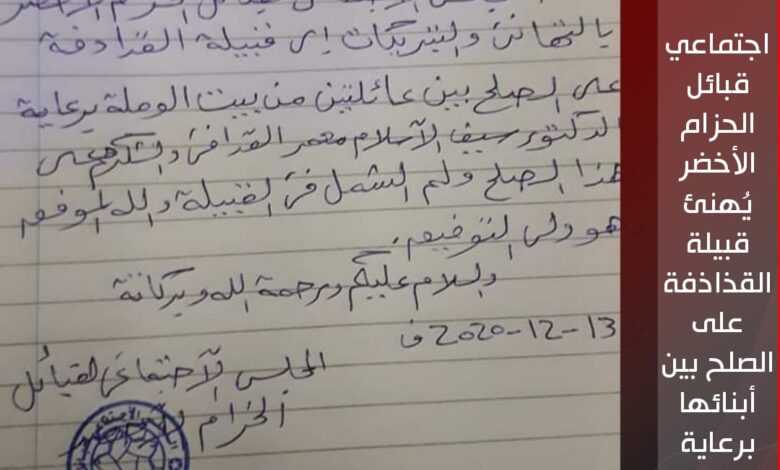 اجتماعي
قبائل
الحزام
الأخضر
يُهنئ
قبيلة
القذاذفة
على
الصلح بين
أبنائها
برعاية
بالتهاني والتبريكات إلى قبيلة القدادفة
على الصلح بين عائلتين من بيت الوملة برعاية
الدكتور سيف الاسلام معمر القدافي على
هذا الصلح ولم الشمل في القبيلة والله الموفق
هو ولي التوفيق.
والسلام عليكم ورحمة الله وبركاتة
13-12-2020 ف
المجلس الاجتماعي لقبائل
الحزام